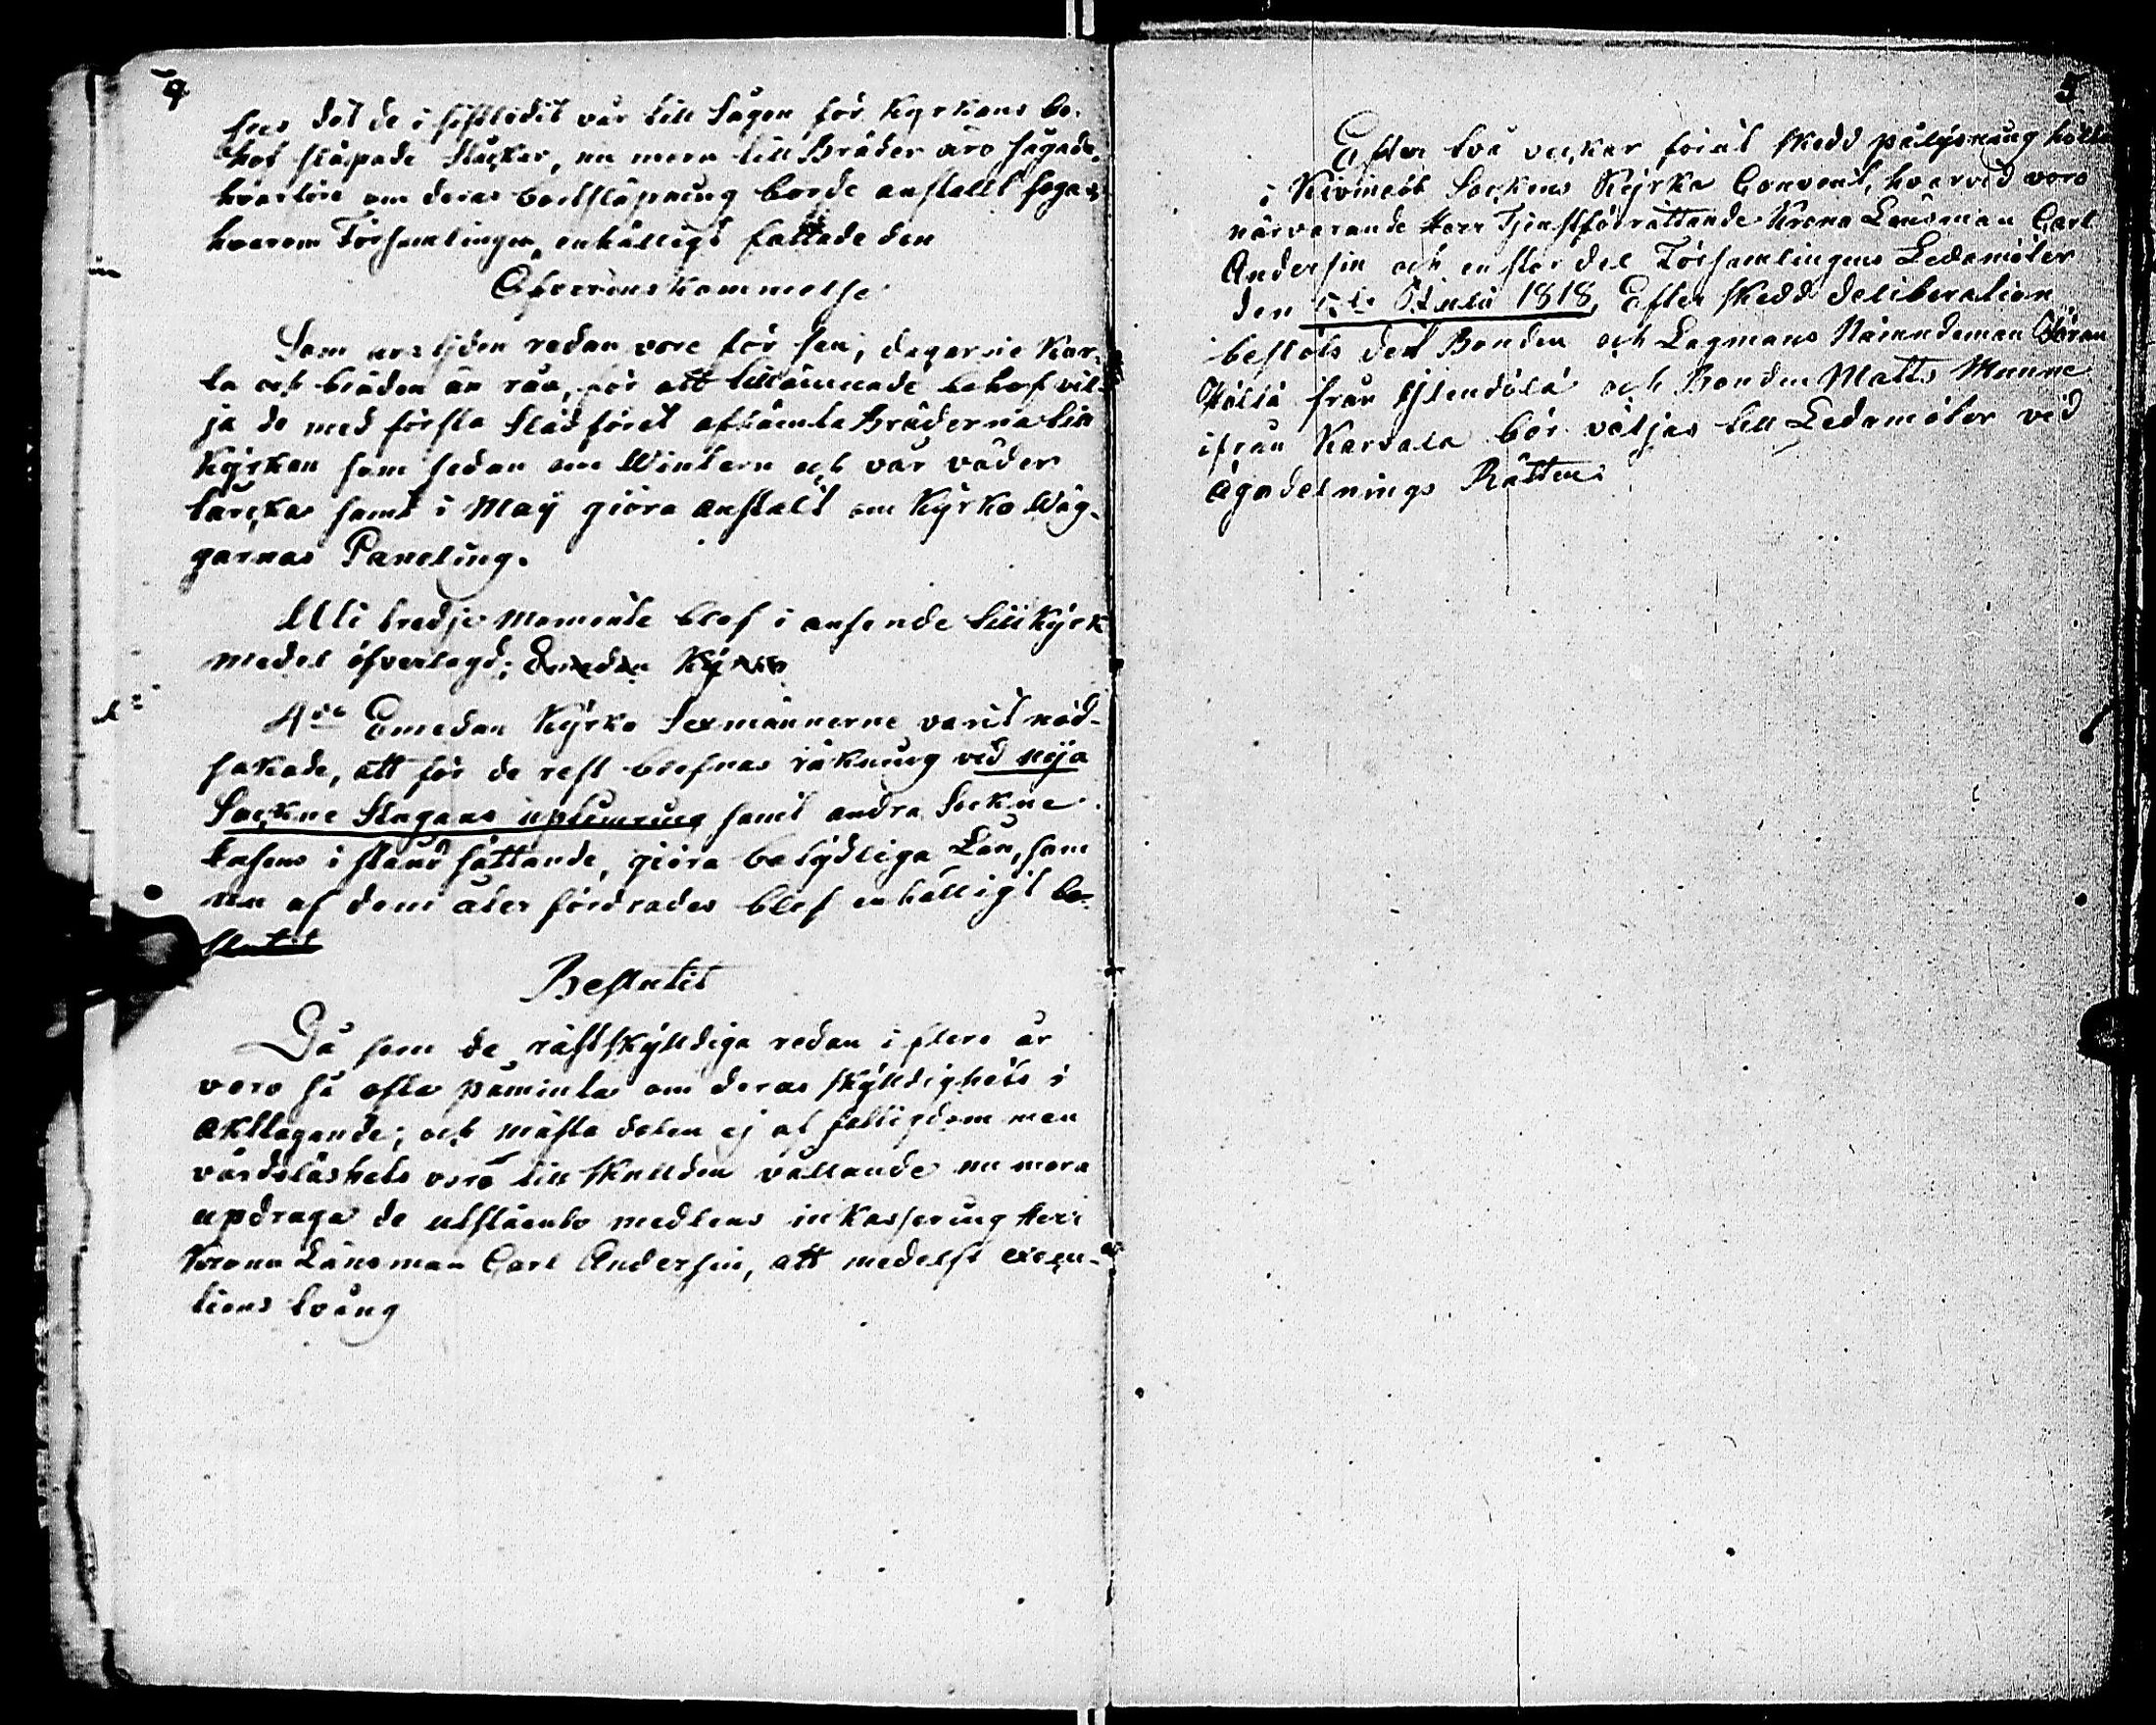 4
det de i sistledit vår till Sågen för Kyrkans be-
hof släpade Stäckar, nu mera till Bräder äro sågade,
hvartöre om deras bortsläpning borde anstallt fogas,
hvarom Församlingen enhälligt fattade den
Öfverenskommelse
Som årstjden redan vore för sen, dagarne kor-
ta och bräden än råa, för att till ämnade behof vil-
ja de med första Slädföret afhämta Bräderna till
Kyrkan som sedan om Wintern och vår väder
tårcka samt i Maÿ giöra anstalt om Kyrko Wäg-
garnas Paneling.
Uti tredje Momente blef i anseende till Kyrk
medel öfverlagd; Emedan
4de Emedan Kyrko Sexmännerne varit nöd-
sakade, att för de rest blefnas räkning vid nÿa
Sockne Stugans uptimring samt andra Sockne
husens i stånd sättande, giöra betydliga Lån, som
nu af dem åter fordrades blef enhälligt be-
slutit
Beslutit
Då som de rästskÿlldiga redan i flere år
voro så ofta påminta om deras skÿlldighets i
akttagande; och mästa delen ej af fattigdom men
vårdslåshets voro till skullden vållande nu mera
updraga de utstående medlens inkassering Herr
Krono Länsman Carl Andersin, att medelst execu-
tions tvång
5
Efter två veckor förut skedd pålysning hölts
i Kivinebb Sockens Kÿrka Convent, hvarvid voro
närvarande Herr Tjenstförrättande Krono Länsman Carl
Andersin och en stor del Församlingens Ledamöter
den 5te Julii 1818, Efter skedd deliberation
beslöts det Bonden och Lagmans Nämndeman Göran
från och Bonden Matts
ifrån Karvala bör väljas till Ledamöter vid
Ägodelnings Rätten.